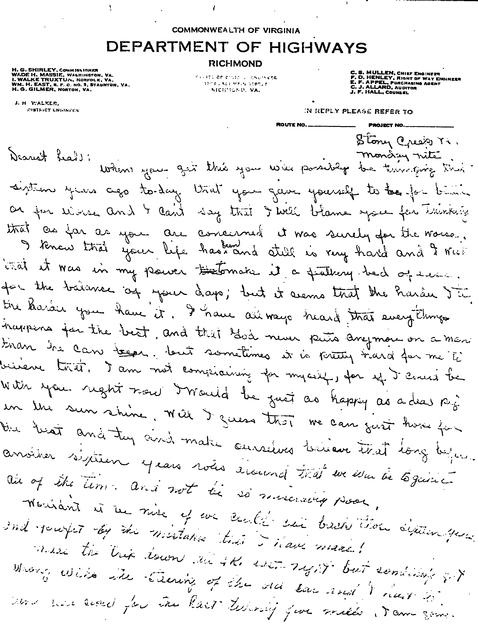 COMMONWEALTH OF VIRGINIA
DEPARTMENT OF HIGHWAYS
RICHMOND
H. G. SHIRLEY, COMMISSIONER
WADE H. MASSIE, WASHINGTON, VA.
I. WALKE TRUXTUN, NORFOLK, VA.
WM. H. EAST, R. F. D. NO. 3, STAUNTON, VA.
H. G. GILMER, NORTON, VA.
J. H. WALKER,
DISTRICT ENGINEER
RICHMOND, VA.
C. S. MULLEN, CHIEF ENGINEER
F. D. HENLEY, RIGHT OF WAY ENGINEER
E. F. APPEL, PURCHASING AGENT
C. J. ALLARD, AUDITOR
J. F. HALL, COUNSEL
IN REPLY PLEASE REFER TO
ROUTE NO. PROJECT NO.
Stony Creek Va.
Monday nite
Dearest
When you get this you will possibly be thinking that
sixteen years ago to-day that you gave yourself to me for better
or for worse and I can't say that I will blame you for thinking
that as far as you are concerned it was surely for the worse.
I know that your life has been and still is very hard and I wish
that it was in my power to make it a feathery bed of ease
for the balance of your days; but it seems that the harder I try
the harder you have it. I have always heard that everything
happens for the best, and that God never puts anymore on a man
than he can bear, but sometimes it is pretty hard for me to
believe that. I am not complaining for myself, for if I could be
with you right now I would be just as happy as a dead pig
in the sun shine. Well I guess that we can just hope for
the best and try and make ourselves believe that long before
another sixteen years rolls around that we will be together
all of the time and not be so miserably poor.
Wouldn't it be nice if we could call back those sixteen years
and profit by the mistakes that I have made!
Made the trip down all OK last night but something got
wrong with the steering of the old car and I had to
for the last twenty five miles. I am going